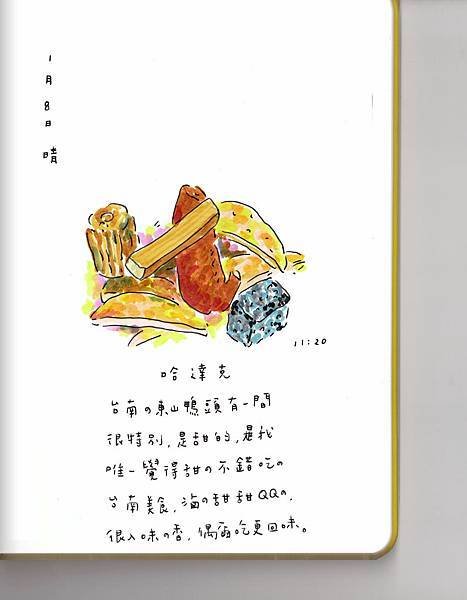 1月8日 晴
11:20
哈達克
台南の東山鴨頭有一間
很特別,是甜的,是我
唯一覺得甜の不錯吃の
台南美食,滷の甜甜QQの,
很入味の香,偶爾吃更回味。